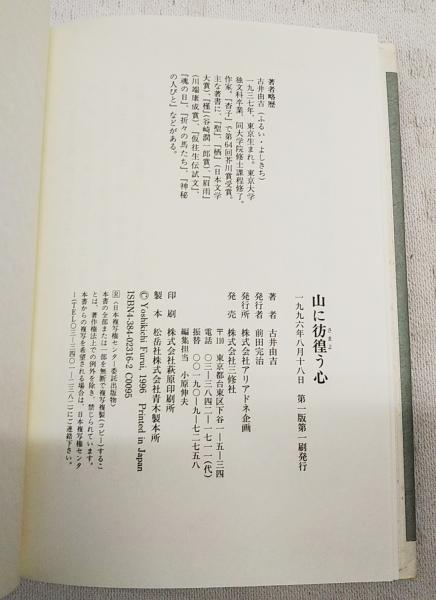 著者略歴
古井由吉(ふるい・よしきち)
一九三七年、東京生まれ。東京大学
独文科卒業、同大学院修士課程修了。
作家。「杳子」で第64回芥川賞受賞。
主な著書に、『聖』、『栖』(日本文学
大賞)、『槿』(谷崎潤一郎賞)、『眉雨』
(川端康成賞)、『仮往生伝試文』、
『魂の日』、『折々の馬たち』、『神秘
の人びと』などがある。
山に彷徨う心
さまよ
一九九六年八月十八日 第一版第一刷発行
著者 古井由吉
発行者 前田完治
発行所 株式会社アリアドネ企画
発売 株式会社三修社
〒110 東京都台東区下谷一―五―三四
電話 〇三―三八四二―一七一一(代)
振替 〇〇一九〇―九―七二七五八
編集担当 小原伸夫
印刷 株式会社萩原印刷所
製本 松岳社株式会社青木製本所
© Yoshikichi Furui, 1996 Printed in Japan
ISBN4-384-02316-2 C0095
Ⓡ〈日本複写権センター委託出版物〉
本書の全部または一部を無断で複写複製(コピー)するこ
とは、著作権法上での例外を除き、禁じられています。
本書からの複写を希望される場合は、日本複写権センタ
ー(TEL〇三―三四〇一―二三八二)にご連絡下さい。